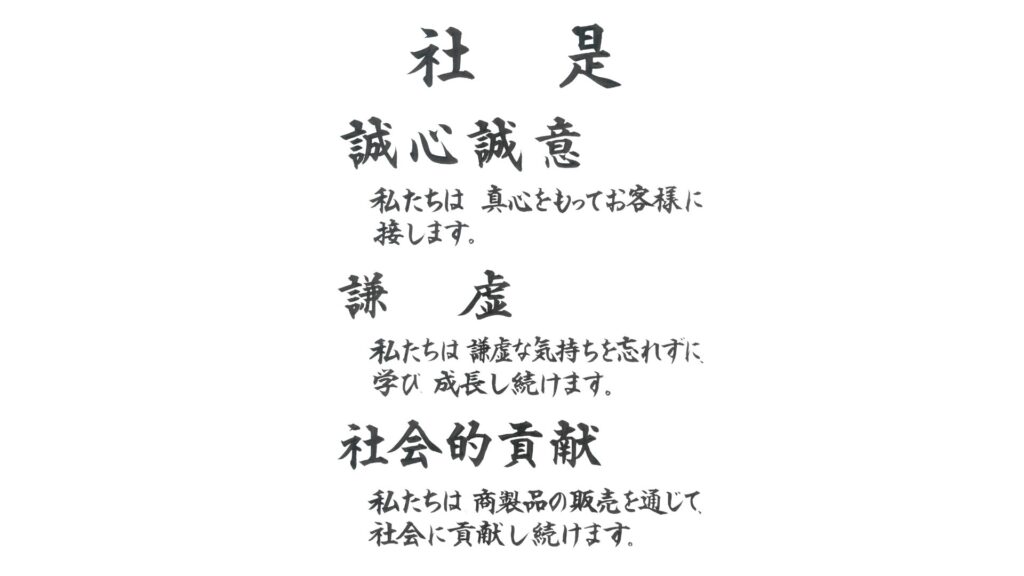 社 是
誠心誠意
私たちは 真心をもってお客様に
接します。
謙 虚
私たちは 謙虚な気持ちを忘れずに、
学び 成長し続けます。
社会的貢献
私たちは 商製品の販売を通じて、
社会に貢献し続けます。